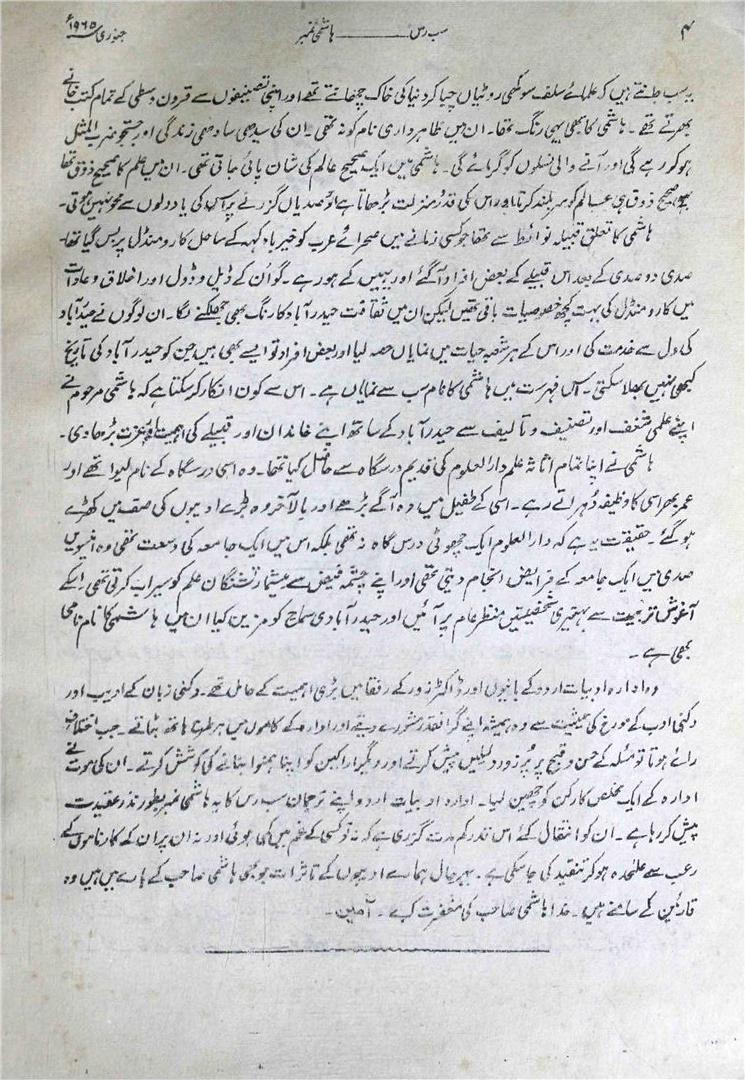 ۴ سب رس ــــــ ہاشمی نمبر جنوری ۱۹۶۵ء
یہ سب جانتے ہیں کہ علمائے سلف سوکھی روٹیاں چبا کر دنیا کی خاک چھانتے تھے اور اپنی تصنیفوں سے قرون وسطی کے تمام کتب خانے
بھرتے تھے۔ ہاشمی کا بھی یہی رنگ تھا۔ ان میں ظاہر داری نام کو نہ تھی۔ ان کی سیدھی سادھی زندگی اور جستجو ضرب المثل
ہو کر رہے گی اور آنے والی نسلوں کو گرمائے گی۔ ہاشمی میں ایک صحیح عالم کی شان پائی جاتی تھی۔ ان میں علم کا صحیح ذوق تھا
یہ صحیح ذوق ہی عالم کو سربلند کرتا اور اس کی قدر و منزلت بڑھاتا ہے اور صدیاں گزرنے پر اس کی یاد دلوں سے محو نہیں ہوتی۔
ہاشمی کا تعلق قبیلہ نوائط سے تھا جو کسی زمانے میں صحرائے عرب کو خیرباد کہہ کے ساحل کارومنڈل پر بس گیا تھا۔
صدی دو صدی کے بعد اس قبیلے کے بعض افراد آگئے اور یہیں کے ہو رہے۔ گو اُن کے ڈیل و ڈول اور اخلاق و عادات
میں کارومنڈل کی بہت کچھ خصوصیات باقی تھیں لیکن ان میں ثقافت حیدرآباد کا رنگ بھی جھلکنے لگا۔ ان لوگوں نے حیدرآباد
کی دل سے خدمت کی اور اس کے ہر شعبہ حیات میں نمایاں حصہ لیا اور بعض افراد تو ایسے بھی ہیں جن کو حیدرآباد کی تاریخ
کبھی نہیں بھلا سکتی۔ اس فہرست میں ہاشمی کا نام سب سے نمایاں ہے۔ اس سے کون انکار کر سکتا ہے کہ ہاشمی مرحوم نے
اپنے علمی شغف اور تصنیف و تالیف سے حیدرآباد کے ساتھ اپنے خاندان اور قبیلے کی اہمیت و عزت بڑھا دی۔
ہاشمی نے اپنا تمام اثاثہ علم دارالعلوم کی قدیم درسگاہ سے حاصل کیا تھا۔ وہ اسی درسگاہ کے نام لیوا تھے اور
عمر بھر اسی کا وظیفہ دُہراتے رہے۔ اسی کے طفیل میں وہ آگے بڑھے اور بالآخر وہ بڑے ادیبوں کی صف میں کھڑے
ہو گئے۔ حقیقت یہ ہے کہ دارالعلوم ایک چھوٹی درس گاہ نہ تھی بلکہ اس میں ایک جامعہ کی وسعت تھی وہ انیسویں
صدی میں ایک جامعہ کے فرائض انجام دیتی تھی اور اپنے چشمہ فیض سے بیشمار تشنگان علم کو سیراب کرتی تھی۔ اسکے
آغوش تربیت سے بہتیری شخصیتیں منظر عام پر آئیں اور حیدرآبادی سماج کو مزین کیا ان میں ہاشمی کا نام نامی
بھی ہے۔
وہ ادارہ ادبیات اردو کے بانیوں اور ڈاکٹر زور کے رفقا میں بڑی اہمیت کے حامل تھے۔ دکنی زبان کے ادیب اور
دکنی ادب کے مورخ کی حیثیت سے وہ ہمیشہ اپنے گرانقدر مشورے دیتے اور ادارہ کے کاموں میں ہر طرح ہاتھ بٹاتے۔ جب اختلاف
رائے ہوتا تو مسئلہ کے حسن و قبیح پر پُر زور دلیلیں پیش کرتے اور دیگر اراکین کو اپنا ہمنوا بنانے کی کوشش کرتے۔ ان کی موت نے
ادارہ کے ایک مخلص کارکن کو چھین لیا۔ ادارہ ادبیات اردو اپنے ترجمان سب رس کا یہ ہاشمی نمبر بطور نذر عقیدت
پیش کر رہا ہے۔ ان کو انتقال کئے اس قدر کم مدت گزری ہے کہ نہ تو کسی کے غم میں کمی ہوئی اور نہ ان پر ان کے کارناموں کے
رعب سے علیحدہ ہو کر تنقید کی جا سکی ہے۔ بہرحال ہمارے ادیبوں کے تاثرات جو بھی ہاشمی صاحب کے بارے میں ہیں وہ
قارئین کے سامنے ہیں۔ خدا ہاشمی صاحب کی مغفرت کرے۔ آمین۔